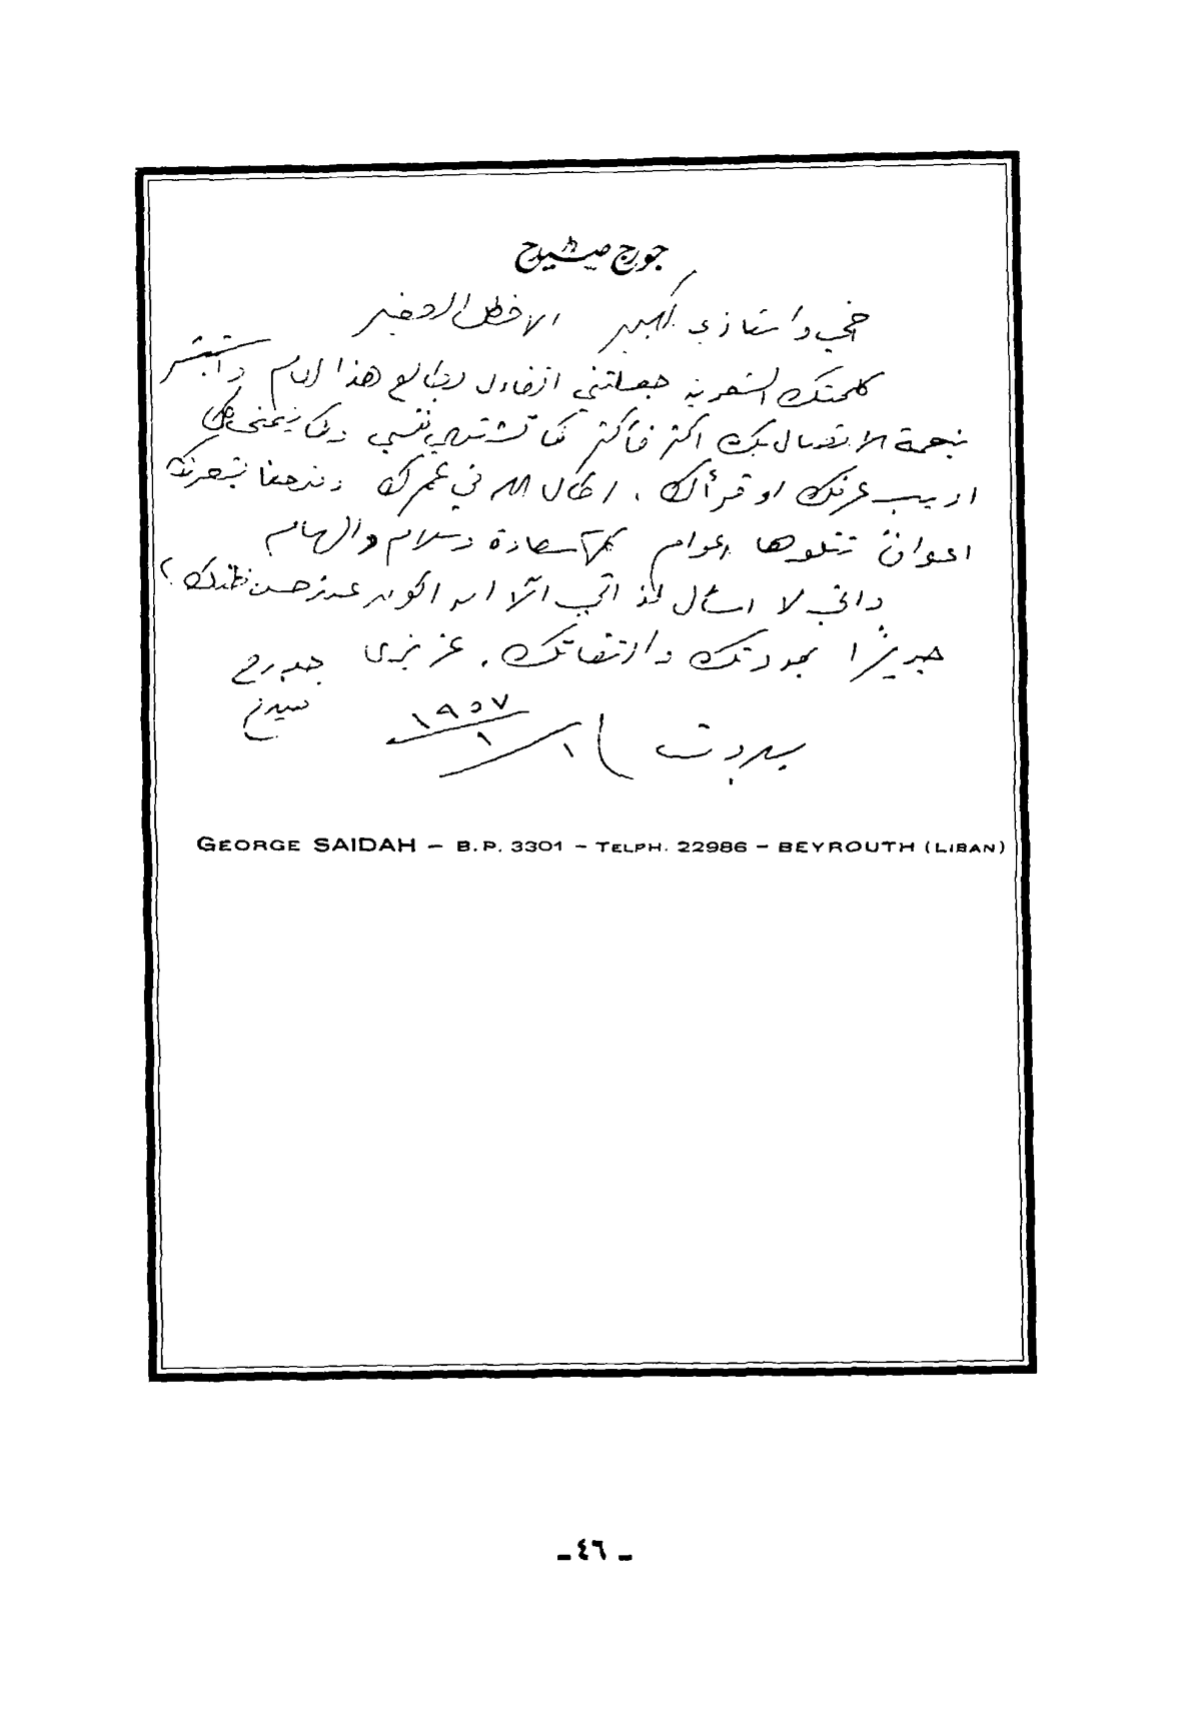 جورج صيدح
اخي واستاذي الكبير الاخطل الصغير
كلمتك الشعرية جعلتني اتفاءل بطالع هذا العام واستبشر
بنعمة الاتصال بك اكثر فأكثر كما تشتهي نفسي وكما يتمنى كل
اديب عرفك او قرأك. اطال الله في عمرك ونفحنا بشعرك
اعواناً تتلوها اعوام كلها سعادة وسلام والهام
واني لا اسأل لذاتي الا ان اكون عند حسن ظنك
جديراً بمودتك والتفاتك. عزيزي جورج
صيدح
بيروت ١/١/١٩٥٧
GEORGE SAIDAH – B.P. 3301 – TELPH. 22986 – BEYROUTH (LIBAN)
- ٤٦ -